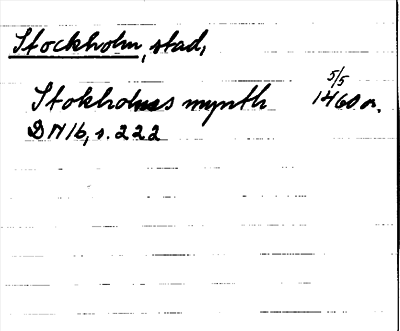 Stockholm, stad,
Stokholms mynth 5/5 1460 or.
DN 16, s. 222